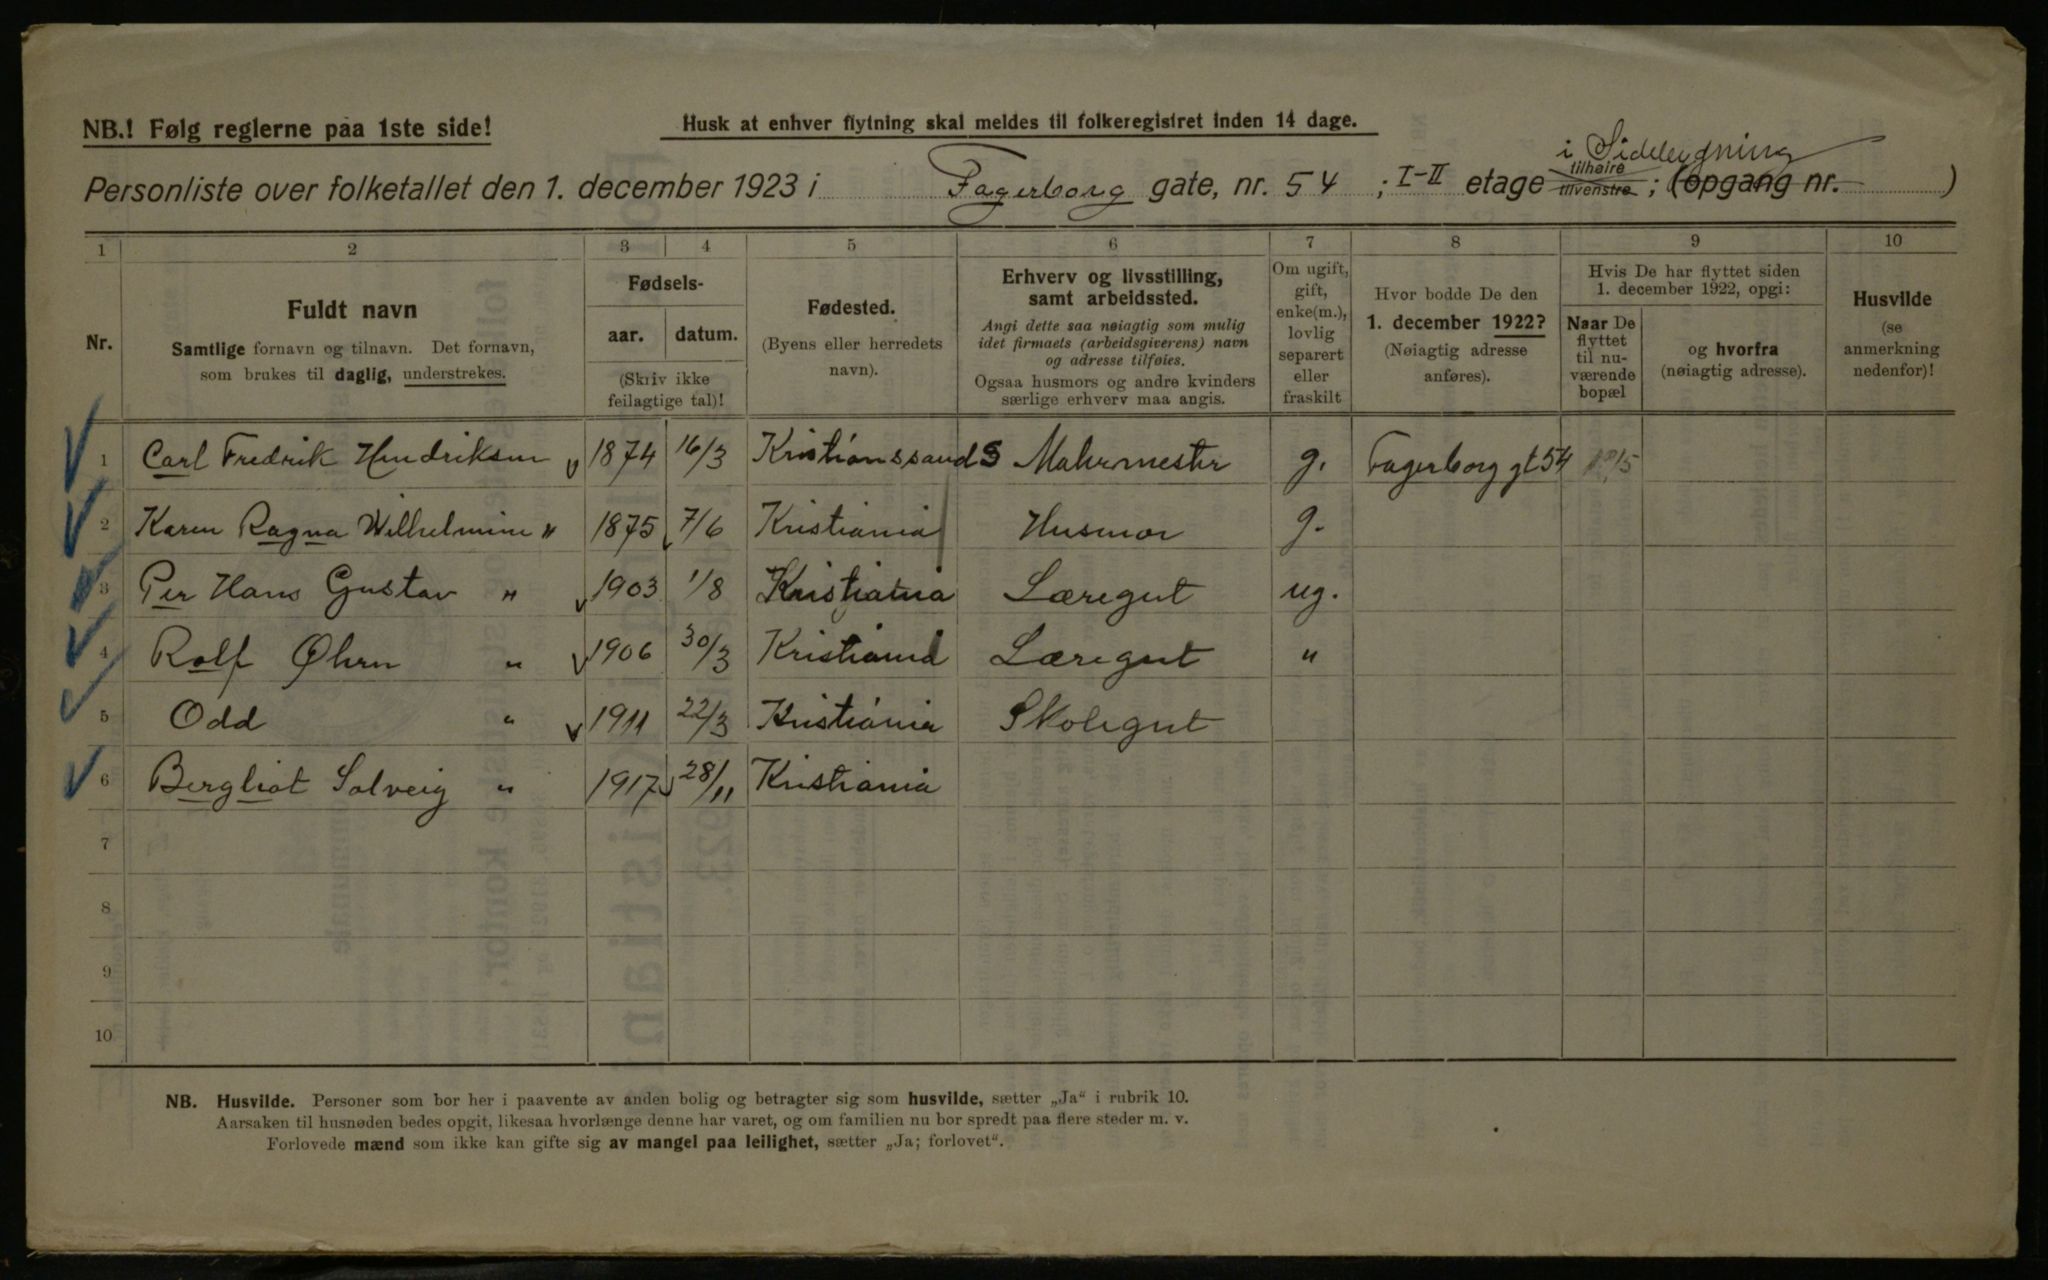 NB.! Følg reglerne paa 1ste side!
Husk at enhver flytning skal meldes til folkeregistret inden 14 dage.
i Sidebygning
Personliste over folketallet den 1. december 1923 i Fagerborg gate, nr. 54 ; I-II etage tilhøire tilvenstre ; (opgang nr. )
1 2 3 4 5 6 7 8 9 10
Nr.
Fuldt navn
Samtlige fornavn og tilnavn. Det fornavn,
som brukes til daglig, understrekes.
Fødsels-
aar. datum.
(Skriv ikke
feilagtige tal)!
Fødested.
(Byens eller herredets
navn).
Erhverv og livsstilling,
samt arbeidssted.
Angi dette saa nøiagtig som mulig
idet firmaets (arbeidsgiverens) navn
og adresse tilføies.
Ogsaa husmors og andre kvinders
særlige erhverv maa angis.
Om ugift,
gift,
enke(m.),
lovlig
separert
eller
fraskilt
Hvor bodde De den
1. december 1922?
(Nøiagtig adresse
anføres).
Hvis De har flyttet siden
1. december 1922, opgi:
Naar De
flyttet
til nu-
værende
bopæl
og hvorfra
(nøiagtig adresse).
Husvilde
(se
anmerkning
nedenfor)!
1 Carl Fredrik Hendriksen 1874 16/3 Kristianssand S Malermester g. Fagerborg gt 54
2 Karen Ragna Wilhelmine " 1875 7/6 Kristiania Husmor g.
3 Per Hans Gustav " 1903 1/8 Kristiania Læregut ug.
4 Rolf Øhrn " 1906 30/3 Kristiania Læregut "
5 Odd " 1911 22/3 Kristiania Skolegut
6 Bergliot Solveig " 1917 28/11 Kristiania
7
8
9
10
NB. Husvilde. Personer som bor her i paavente av anden bolig og betragter sig som husvilde, sætter „Ja“ i rubrik 10.
Aarsaken til husnøden bedes opgit, likesaa hvorlænge denne har varet, og om familien nu bor spredt paa flere steder m. v.
Forlovede mænd som ikke kan gifte sig av mangel paa leilighet, sætter „Ja; forlovet“.